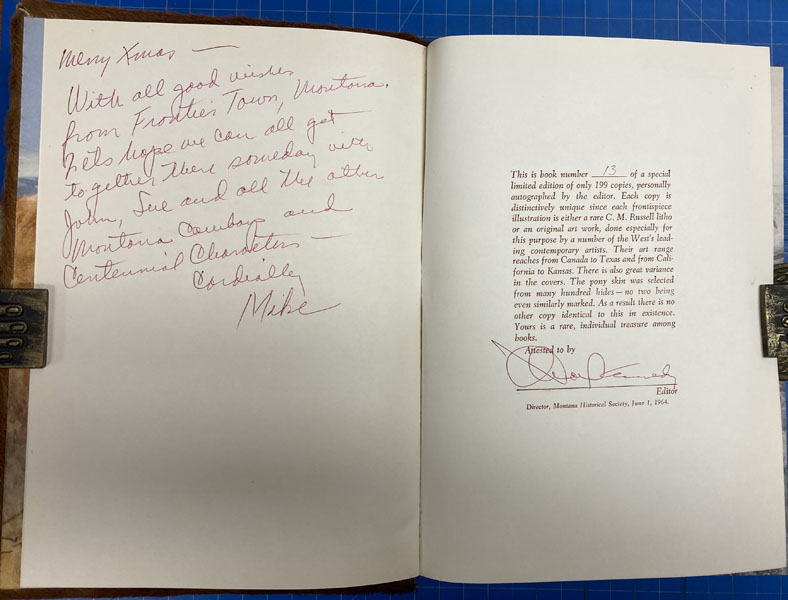 Merry Xmas —
With all good wishes
from Frontier Town, Montana.
Let's hope we can all get
together there someday with
John, Sue and all the other
Montana Cowboys and
Centennial Characters —
Cordially
Mike
This is book number 13 of a special
limited edition of only 199 copies, personally
autographed by the editor. Each copy is
distinctively unique since each frontispiece
illustration is either a rare C. M. Russell litho
or an original art work, done especially for
this purpose by a number of the West's lead-
ing contemporary artists. Their art range
reaches from Canada to Texas and from Cali-
fornia to Kansas. There is also great variance
in the covers. The pony skin was selected
from many hundred hides — no two being
even similarly marked. As a result there is no
other copy identical to this in existence.
Yours is a rare, individual treasure among
books.
Attested to by
Kennedy
Editor
Director, Montana Historical Society, June 1, 1964.